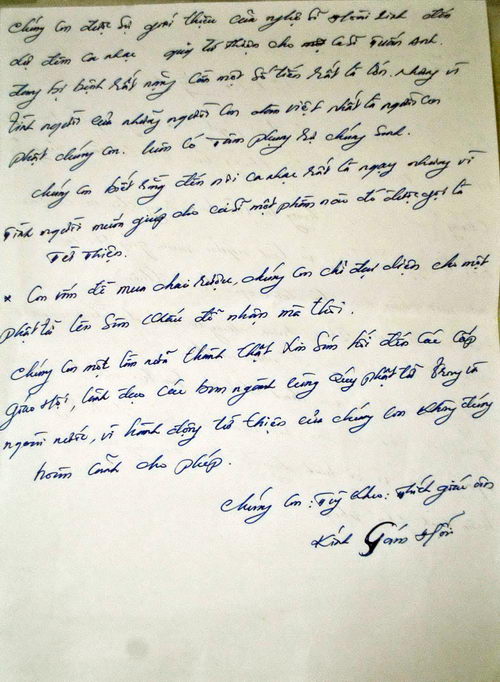 chúng con được sự giới thiệu của nghệ sĩ Hoài Linh đến
dự đêm ca nhạc quỹ từ thiện cho ca sĩ Tuấn Anh.
đang bị bệnh rất nặng cần một số tiền rất là lớn. nhưng vì
tình người của những người con dân việt nhất là người con
phật chúng con. luôn có Tâm phụng sự chúng sinh.
chúng con biết rằng đến nơi ca nhạc rất là ngay nhưng vì
Tình người muốn giúp cho ca sĩ một phần nào đó được gọi là
Từ Thiện.
* Còn vấn đề mua chai rượu, chúng con chỉ đại diện cho một
phật tử lên sân khấu để nhận mà thôi.
chúng con một lần nữa thành thật xin sám hối đến các cấp
giáo Hội, lãnh đạo các ban ngành cùng quý phật tử trong và
ngoài nước, vì hành động từ thiện của chúng con không đúng
hoàn cảnh cho phép.
chúng con: Tỳ kheo: Thích giác
Kính Sám Hối